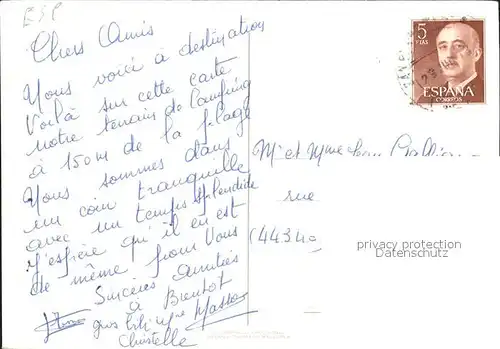 ESP
Chers Amis
Nous voici à destination
Voilà sur cette carte
notre terrain de Camping
à 150m de la plage
Nous sommes dans
un coin tranquille
avec un temps splendide
J'espère qu'il en est
de même pour Vous
Sincères Amitiés
à Bientot
gros
Christelle
5
PTAS
ESPAÑA
CORREOS
Mr et Mme Jean
rue
(44340
privacy protection
Datenschutz